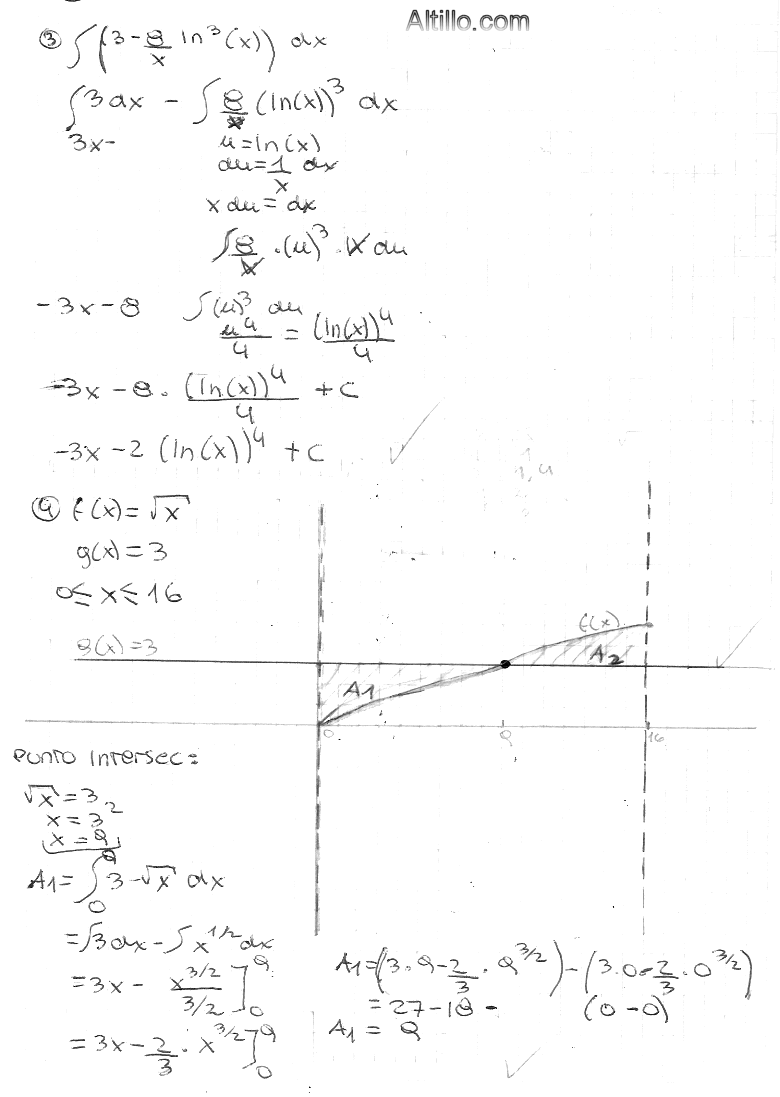 Altillo.com
③ ∫(3 - 8/x ln³(x)) dx
∫3dx - ∫ 8/x (ln(x))³ dx
3x-
u = ln(x)
du = 1/x dx
x du = dx
∫ 8/x · (u)³ · x du
-3x - 8 ∫(u)³ du
u⁴/4 = (ln(x))⁴/4
-3x - 8 · (ln(x))⁴/4 + C
-3x - 2 (ln(x))⁴ + C
④ f(x) = √x
g(x) = 3
0 ≤ x ≤ 16
g(x) = 3
f(x)
A1
A2
0 9 16
Punto intersec =
√x = 3
x = 3²
x = 9
A1 = ∫₀⁹ 3 - √x dx
= ∫3dx - ∫x^1/2 dx
= 3x - x^3/2 / 3/2 ]₀⁹
= 3x - 2/3 · x^3/2 ]₀⁹
A1 = (3·9 - 2/3 · 9^3/2) - (3·0 - 2/3 · 0^3/2)
= 27 - 18 - (0 - 0)
A1 = 9